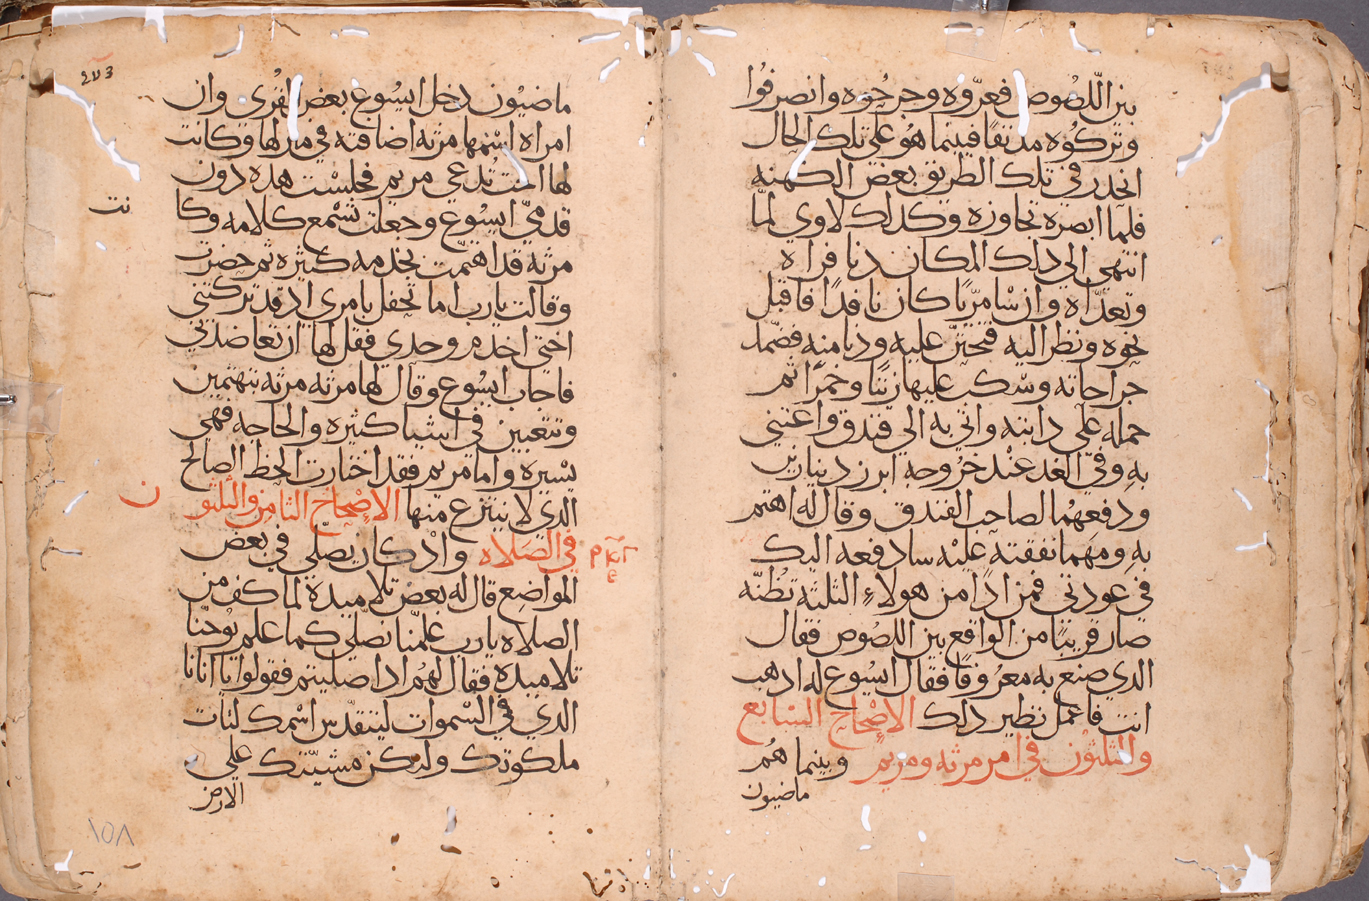 بين اللصوص فعروه وجرحوه وانصرفوا
وتركوه مدنفا فبينما هو على تلك الحال
انحدر في تلك الطريق بعض الكهنه
فلما ابصره تجاوزه وكدلك لاوي لما
انتهى الى دلك المكان دنا فراه
وتعداه وان سامريا كان نافدا فاقبل
نحوه ونظر اليه فتحنن عليه ودنا منه فضمد
جراحاته وسكب عليها زيتا وخمرا ثم
حمله على دابته واتى به الى فندق واعتنى
به وفي الغد عند خروجه ابرز دينارين
ودفعهما لصاحب الفندق وقال له اهتم
به ومهما نفقته عليه سادفعه اليك
في عودتي فمن ادا من هولاء الثلثه تظنه
صار قريبا من الواقع بين اللصوص فقال
الدي صنع به معروفا فقال ايسوع له ادهب
انت فاعمل نظير دلك الاصحاح السابع
والثلثون في امر مرثه ومريم وبينما هم
ماضيون
٤٧٣
ماضيون دخل ايسوع بعض القرى وان
امراه اسمها مرثه اضافته في منزلها وكانت
لها اخت تدعى مريم فجلست هده دون
قدمي ايسوع وجعلت تسمع كلامه وكا
نت
مرثه قد اهتمت بخدمه كثيره ثم حضرت
وقالت يارب اما تحفل بامري اد قد تركتني
اختي اخدم وحدي فقل لها ان تعاضدني
فاجاب ايسوع وقال لها مرثه مرثه تهتمين
وتتعبين في اشيا كثيره والحاجه فهي
يسيره واما مريم فقد اختارت الحظ الصالح
الدي لا ينتزع منها الاصحاح الثامن والثلثو
ن
في الصلاه واد كان يصلي في بعض
المواضع قال له بعض تلاميده لما كف من
الصلاه يارب علمنا نصلي كما علم يوحنا
تلاميده فقال لهم ادا صليتم فقولوا ابانا
الدي في السموات ليتقدس اسمك لتات
ملكوتك ولتكن مشيتك على
الارض
١٥٨